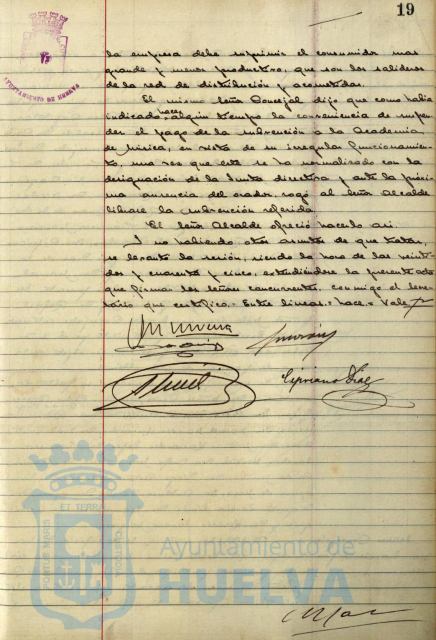 19
AYUNTAMIENTO DE HUELVA
la empresa debe suprimir el consumidor mas
grande y menos productivo, que son los salideros
de la red de distribución y acometidas.
El mismo Señor Concejal dijo que como habia
indicado hace algún tiempo la conveniencia de suspen-
der el pago de la subvención a la Academia
de Música, en vista de su irregular funcionamien-
to, una vez que este se ha normalizado con la
designación de la Junta directiva y ante la próxi-
ma ausencia del orador, rogó al Señor Alcalde
librase la subvención referida.
El Señor Alcalde ofreció hacerlo asi.
Y no habiendo otros asuntos de que tratar,
se levantó la sesión, siendo la hora de las veinti-
dos y cuarenta y cinco, extendiéndose la presente acta
que firman los señores concurrentes, conmigo el Secre-
tario que certifico.- Entre lineas.= hace.= Vale
Cipriano
ET TERRA
PORTUS MARIS
CUSTODIA
Ayuntamiento de
HUELVA